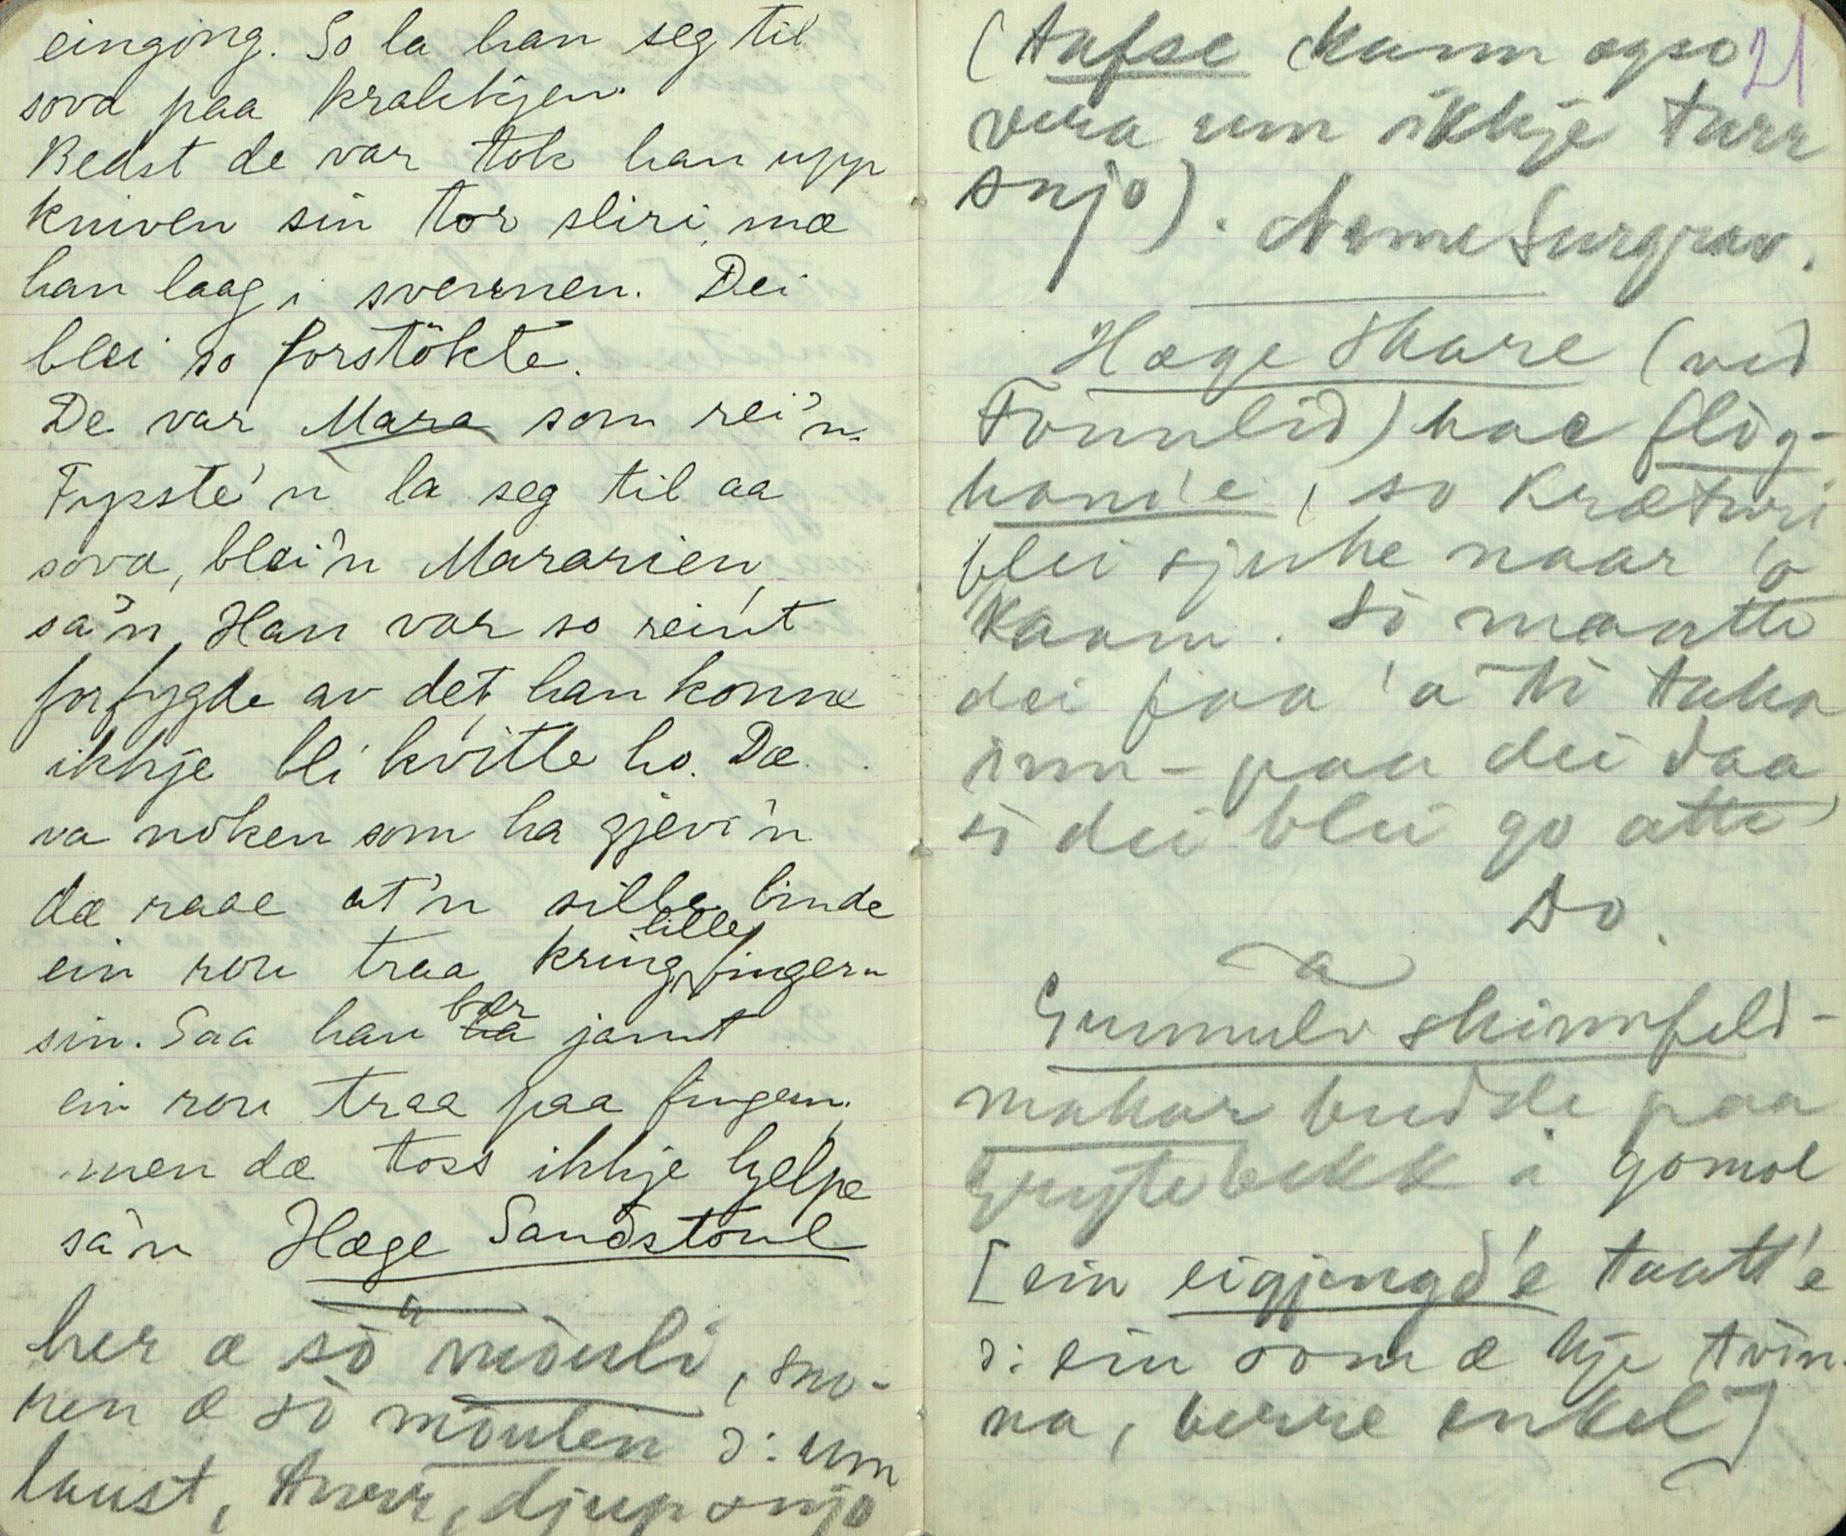 eingong. So la han seg til
sova paa krakkjen.
Bedst de var tok han upp
kniven sin tor sliri, mæ
han laag i svevnen. Dei
blei so forstökte.
De var Mara som rei'n.
Fyrste'n la seg til aa
sova, blei'n Mararien,
sa'n. Han var so reint
forfygde av det, han konne
ikkje bli kvitte ho. Dæ
va noken som ha gjevi'n
dæ raae at'n sille binde
ein rou traa kring lille fingern
sin. Saa han bær jamt
ein rou traa paa fingern,
men dæ toss ikkje hjelpe
sa'n Hæge Sandstoul
a
her æ so mòuli, sno-
ren æ so mòulen ɔ: um
laust, turr, djup snjo
(Aafse kann ogso 21
vera um ikkje turr
snjo). Anne Surgrav.
Hæge Skare (ved
Fònnlid) hae flog-
hond'e, so kræturi
blei sjuke naar 'o
kaam. So maatte
dei faa 'a ti taka
inn-paa dei daa
so dei blei go atte
Do.
a
Gunnulv skinnfeld-
makar budde paa
Grytebekk i gomol
[ein eigjengd'e taatt'e
ɔ: ein som æ kje tvin-
na, berre enkel]